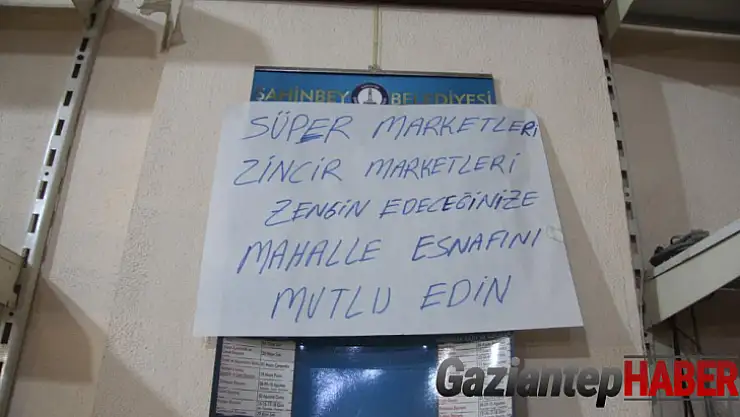 ŞAHİNBEY BELEDİYESİ
SÜPER MARKETLERİ
ZİNCİR MARKETLERİ
ZENGİN EDECEĞİNİZE
MAHALLE ESNAFINI
MUTLU EDİN
GaziantepHABER